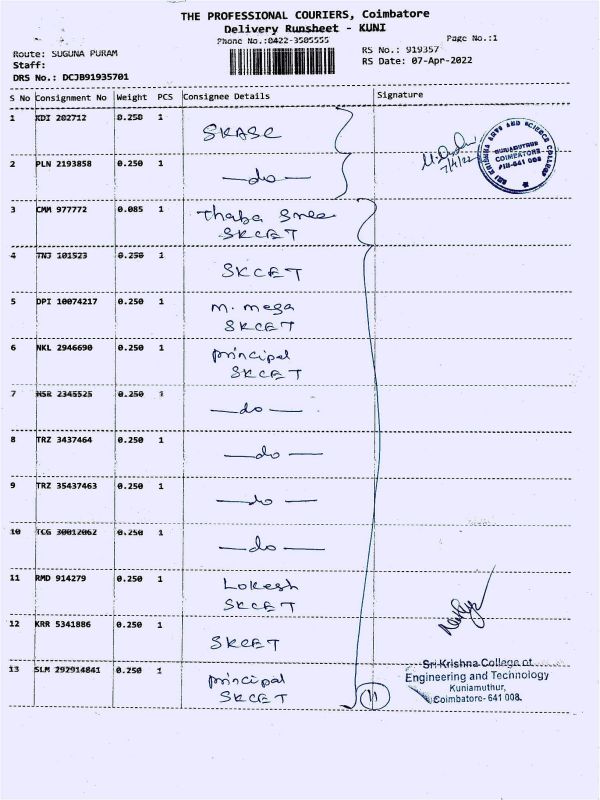 THE PROFESSIONAL COURIERS, Coimbatore
Delivery Runsheet - KUNI
Phone No.:0422-3505555 Page No.:1
Route: SUGUNA PURAM RS No.: 919357
Staff: RS Date: 07-Apr-2022
DRS No.: DCJB91935701
S No Consignment No Weight PCS Consignee Details Signature
1 KDI 202712 0.250 1 SKASC
7/4/22
SRI KRISHNA ARTS AND SCIENCE COLLEGE
KUNIAMUTHUR
COIMBATORE
PIN-641 008
2 PLN 2193858 0.250 1 —do—
3 CMM 977772 0.085 1 Thaba Sree
SKCET
4 TNJ 101523 0.250 1 SKCET
5 DPI 10074217 0.250 1 M. mega
SKCET
6 NKL 2946690 0.250 1 principal
SKCET
7 HSR 2345525 0.250 1 —do—
8 TRZ 3437464 0.250 1 —do—
9 TRZ 35437463 0.250 1 —do—
10 TCG 30012062 0.250 1 —do—
11 RMD 914279 0.250 1 Lokesh
SKCET
12 KRR 5341886 0.250 1 SKCET
13 SLM 292914841 0.250 1 principal
SKCET
11
Sri Krishna College of
Engineering and Technology
Kuniamuthur,
Coimbatore- 641 008.